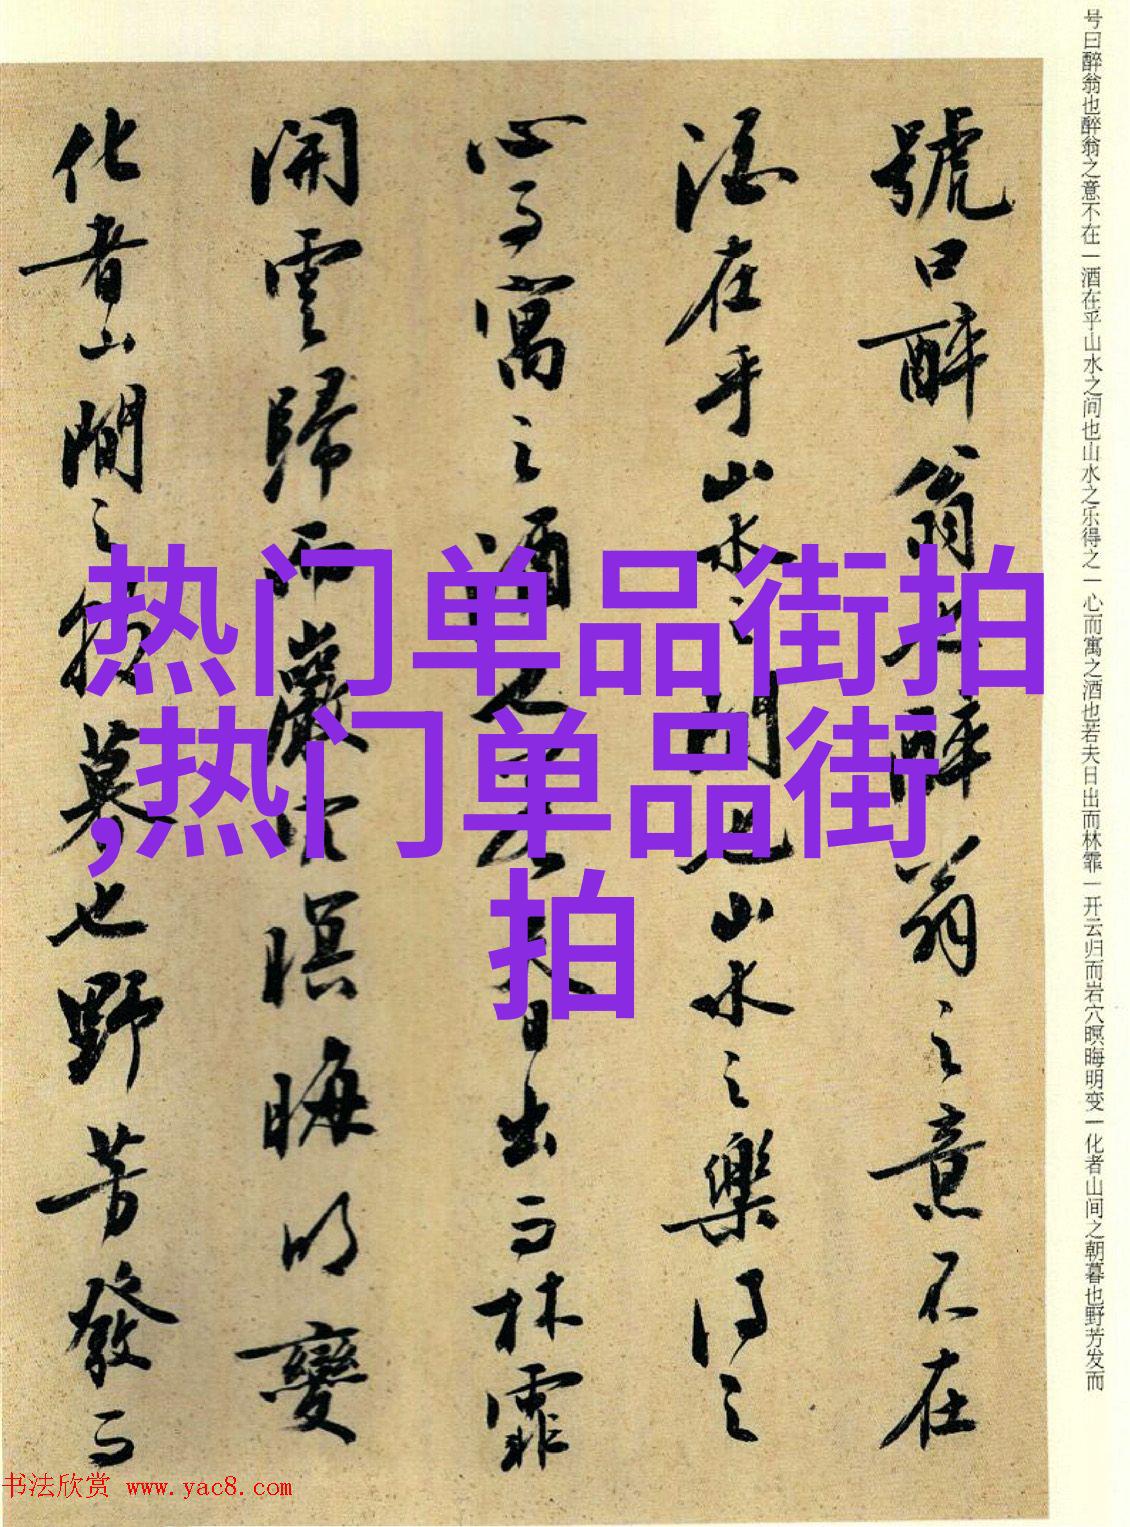 号曰醉翁也醉翁之意不在一酒在乎山水之间也山水之乐得之一心而寓之酒也若夫日出而林霏一开云归而岩穴暝晦明变一化者山间之朝暮也野芳发而
號曰醉翁也醉翁之意不在
酒在乎山水之間也山水之樂得之
心而寓之酒也若夫日出而林霏
開雲歸而巖穴暝晦明變
化者山間之朝暮也野芳發而
热门单品街拍
,热门单品街
拍
书法欣赏 www.yac8.com